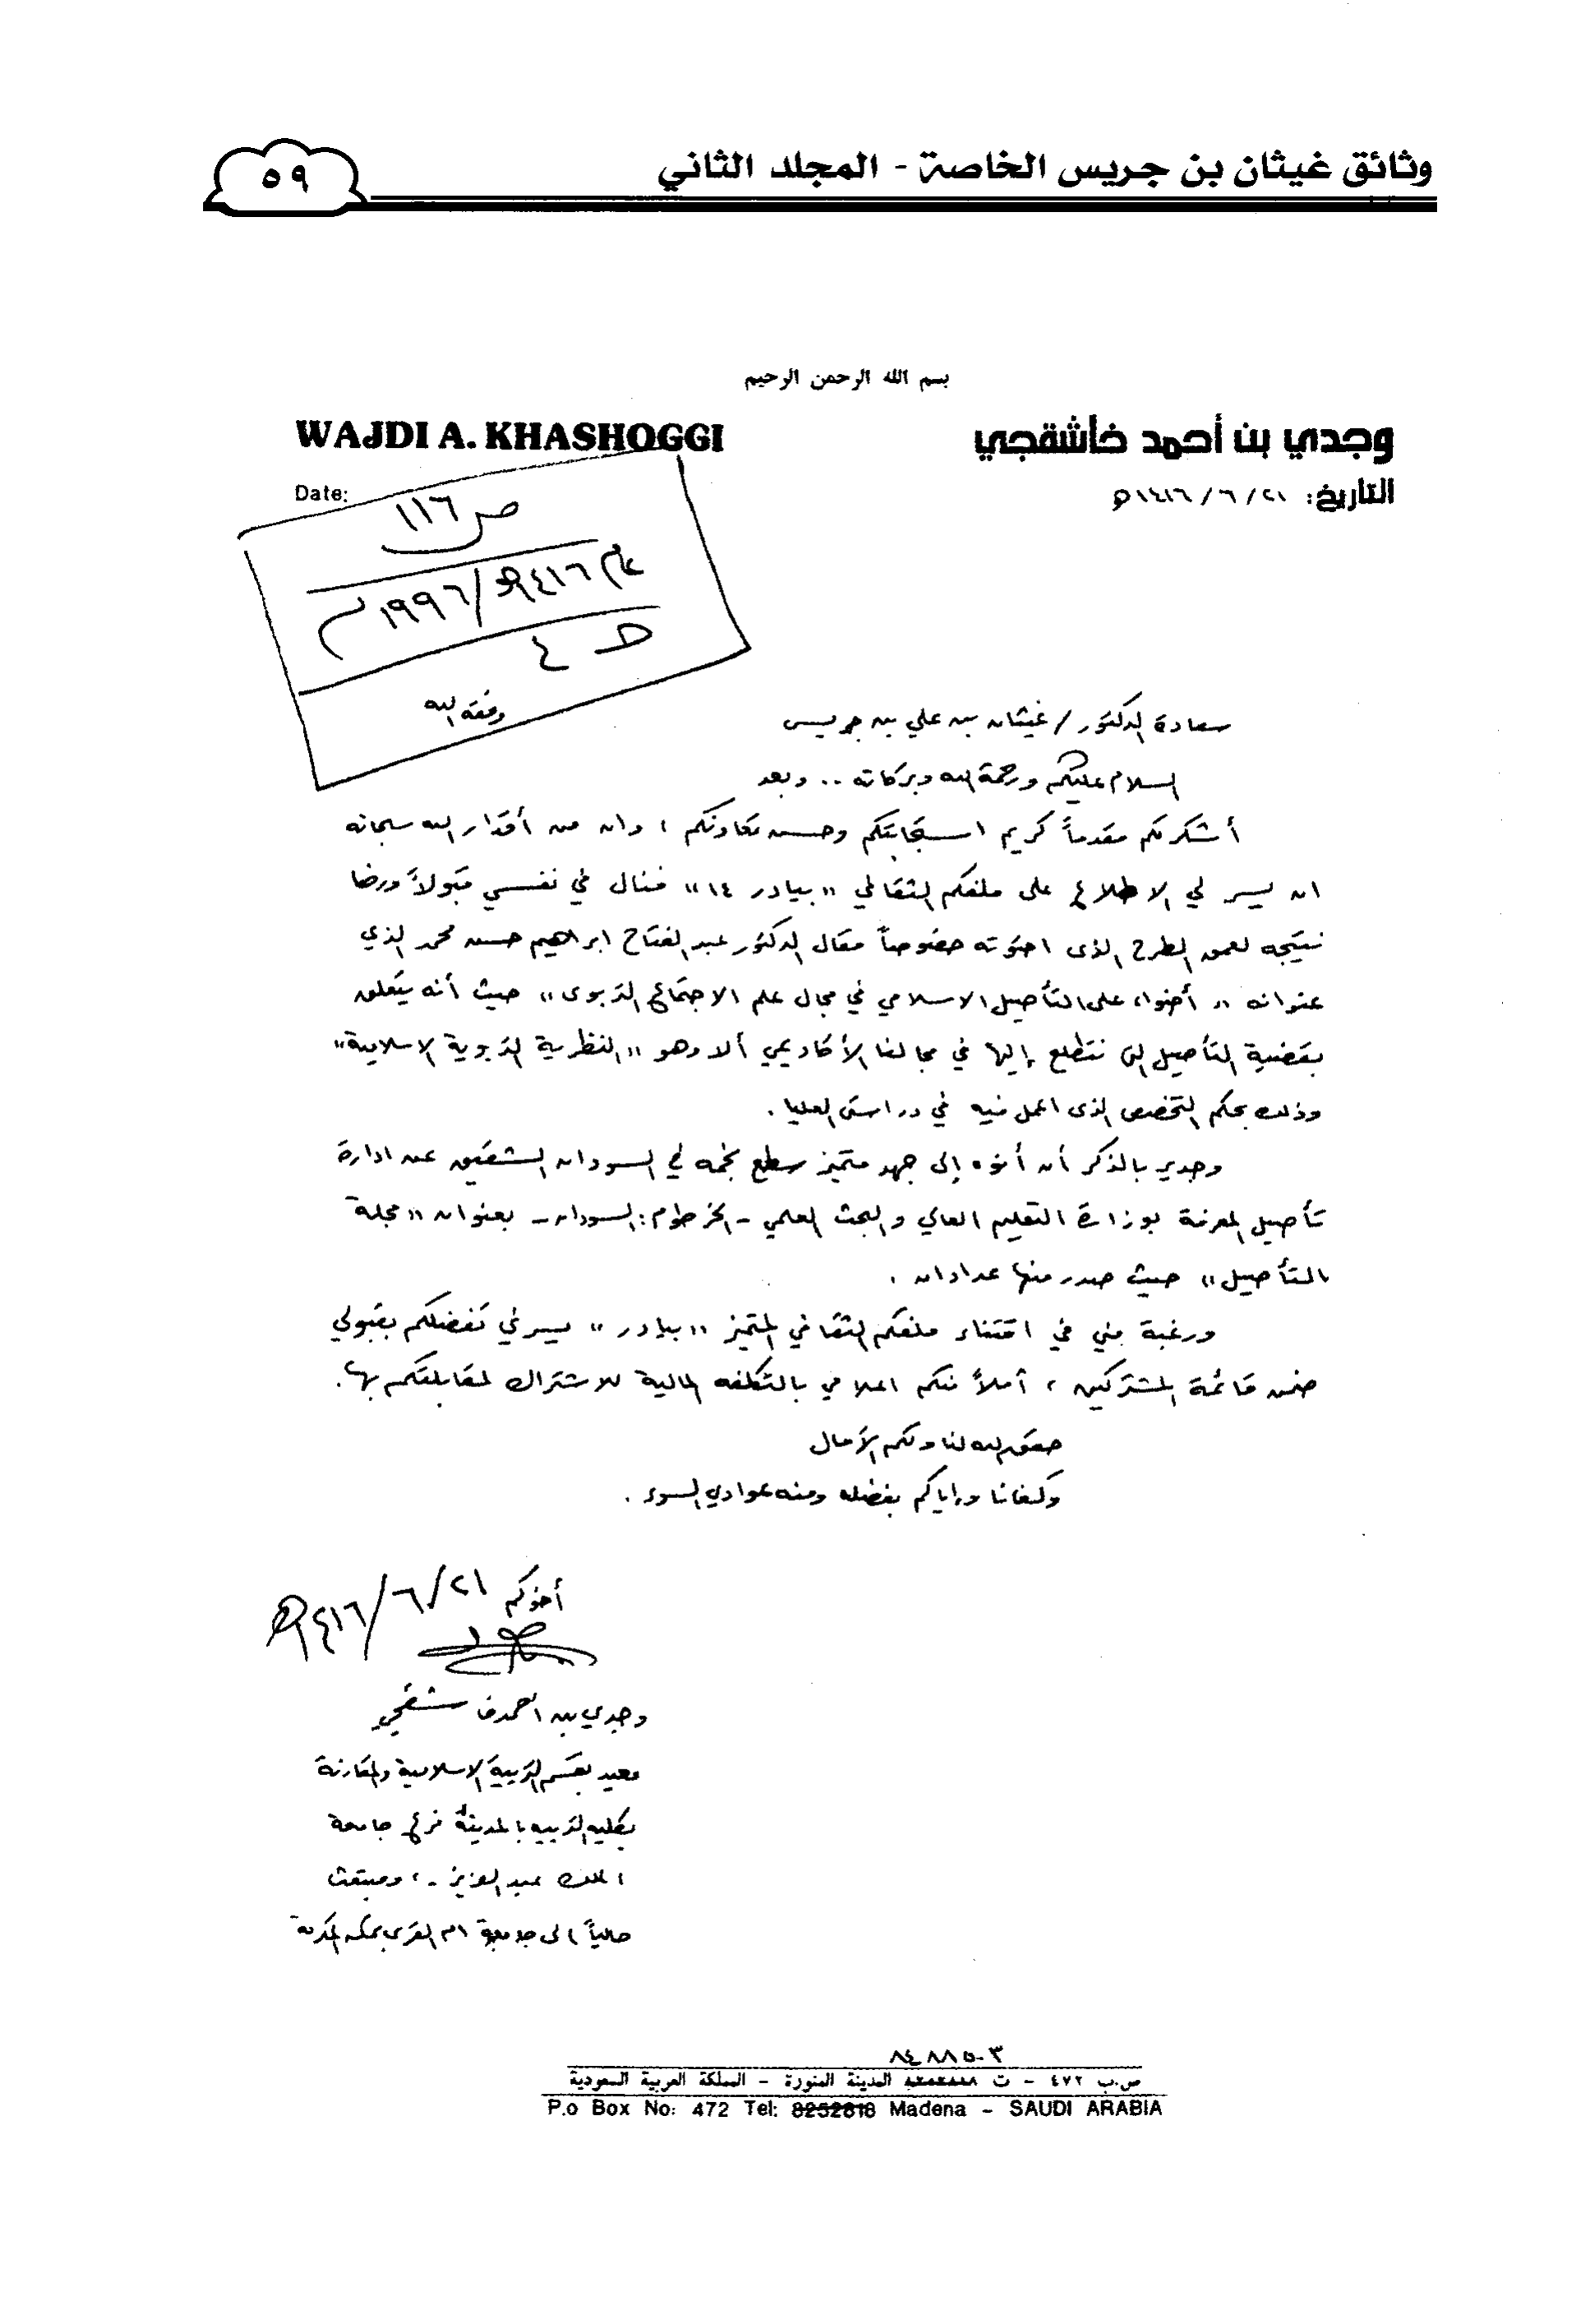 وثائق غيثان بن جريس الخاصة - المجلد الثاني
٥٩
بسم الله الرحمن الرحيم
WAJDI A. KHASHOGGI
وجدي بن أحمد خاشقجي
Date:
التاريخ: ٢١/ ٦/ ١٤١٦هـ
ص ١١٦
عام ١٤١٦هـ/ ١٩٩٦م
ط ٤
وفقه الله
سعادة الدكتور / غيثان بن علي بن جريس
السلام عليكم ورحمة الله وبركاته .. وبعد
أشكر لكم مقدماً كريم استجابتكم وحسن تعاونكم ، وان من أقدار الله سبحانه
ان يسر لي الاطلاع على ملفكم الثقافي "بيادر ١٤" فنال في نفسي قبولاً ورضا
نتيجه لعمق الطرح الذى احتوته خصوصاً مقال الدكتور عبد الفتاح ابراهيم حسن محمد الذي
عنوانه " أضواء على التأصيل الاسلامي في مجال علم الاجتماع التربوى" حيث أنه يتعلق
بقضية التأصيل التى نتطلع إليها في مجالنا الأكاديمي ألا وهو "النظرية التربوية الاسلامية"
وذلك بحكم التخصص الذى اعمل فيه في دراستى العليا .
وجدير بالذكر أن أنوه إلى جهد متميز سطع نجمه في السودان الشقيق عن ادارة
تأصيل المعرفة بوزارة التعليم العالي والبحث العلمي - الخرطوم : السودان - بعنوان "مجلة
التأصيل" حيث صدر منها عدادان .
ورغبة مني في اقتناء ملفكم الثقافي المتميز "بيادر" يسرني تفضلكم بقبولي
ضمن قائمة المشتركين ، آملاً منكم اعلامي بالتكلفه المالية للاشتراك لمقابلتكم بها .
حقق الله لنا ولكم الآمال
وكفانا وإياكم بفضله ومنه عوادي السوء .
أخوكم ٢١/ ٦/ ١٤١٦هـ
وجدي بن احمد خاشقجي
معيد بقسم التربية الاسلامية والمقارنة
بكليه التربيه بالمدينة فرع جامعة
الملك عبد العزيز - ، ومبتعث
حالياً الى جامعة ام القرى بمكه المكرمة
٨٤٨٨٥٠٣
ص.ب ٤٧٢ - ت المدينة المنورة - المملكة العربية السعودية
P.o Box No: 472 Tel: 8252818 Madena - SAUDI ARABIA